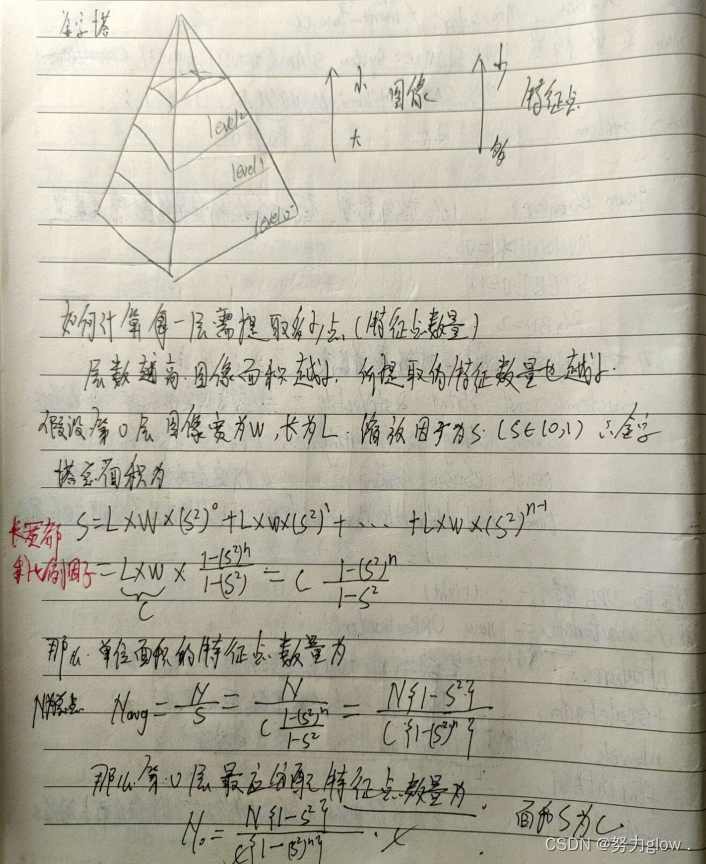 金字塔
小 图像 少 特征点
大 多
level2
level1
level0
如何计算每一层需提取多少点(特征点数量)
层数越高.图像面积越小.所提取的特征数量也越少.
假设第0层图像宽为W,长为L.缩放因子为s.(S∈(0,1) ∴金字
塔总面积为
S=L×W×(s²)⁰+L×W×(s²)¹+⋯+L×W×(s²)ⁿ⁻¹
长宽都
乘比例因子
=L×W×\frac{1-(s²)ⁿ}{1-(s²)}=C\frac{1-(s²)ⁿ}{1-s²}
C
那么.单位面积的特征点数量为
N特征点 Navg=\frac{N}{S}=\frac{N}{C\frac{1-(s²)ⁿ}{1-s²}}=\frac{N{1-s²}}{C{1-(s²)ⁿ}}
那么第0层最应分配特征点数量为. 面积S为C.
N₀=\frac{N{1-s²}}{C{1-(s²)ⁿ}}·C
CSDN @努力glow.